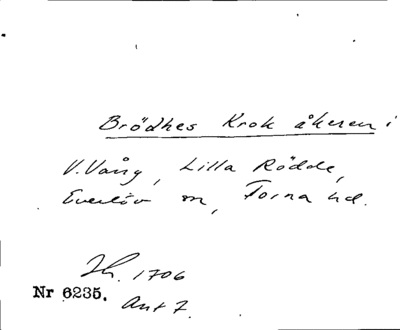 Brödhes Krok åkeren i
V. Vång, Lilla Rödde,
Everlöv sn, Torna hd.
Jb. 1706
Nr 6235. Ant 7.